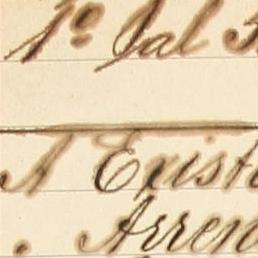 1º Jal
A Exist
Arren